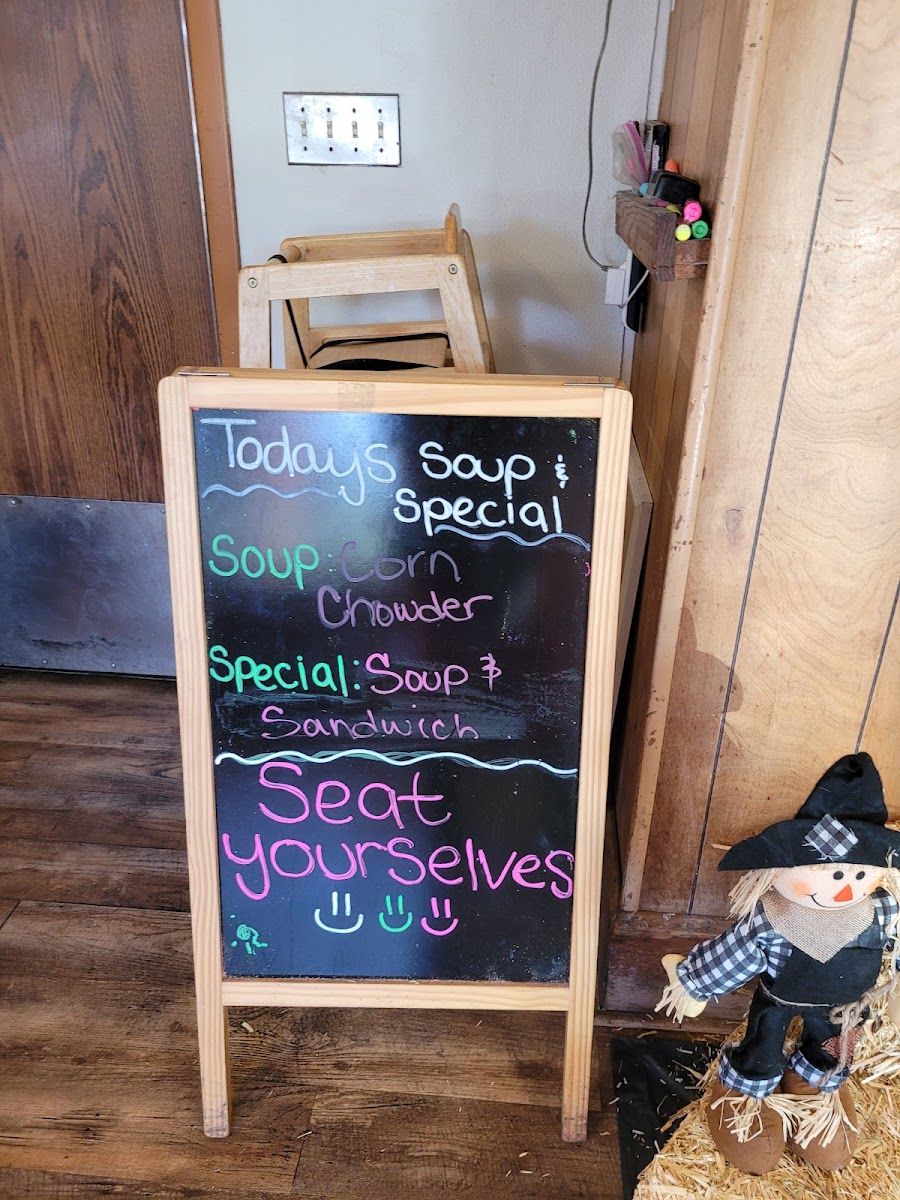 Todays Soup &
Special
Soup: Corn
Chowder
Special: Soup &
Sandwich
Seat
yourselves